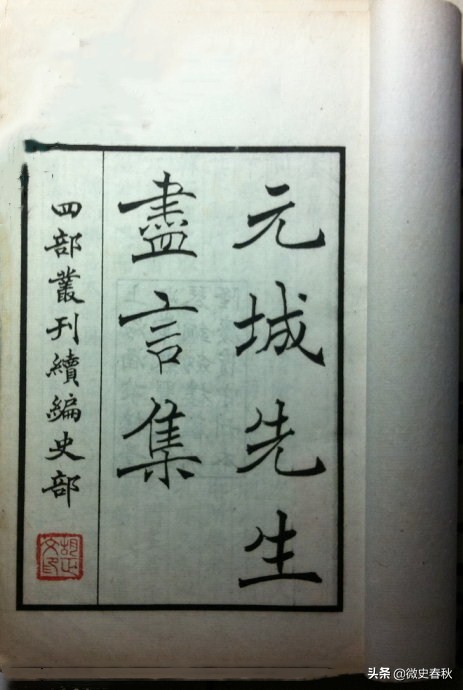 元城先生
盡言集
四部叢刊續編史部
头条 @微史春秋